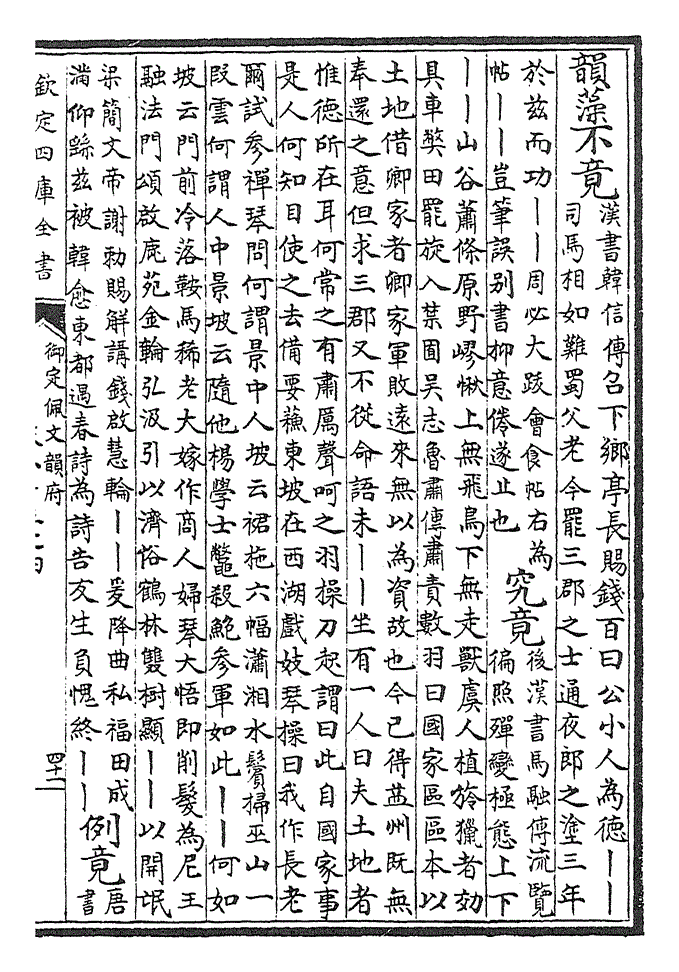 韻藻不竟
漢書韓信傳召下鄉亭長賜錢百曰公小人為德——
司馬相如難蜀父老今罷三郡之士通夜郎之塗三年
於兹而功——周必大跋會食帖右為
帖——豈筆誤别書抑意倦遂止也
究竟
後漢書馬融傳流覽
徧照殫變極態上下
——山谷蕭條原野嵺愀上無飛鳥下無走獸虞人植旍獵者効
具車獘田罷旋入禁囿吳志魯肅傳肅責數羽曰國家區區本以
土地借卿家者卿家軍敗遠來無以為資故也今已得益州既無
奉還之意但求三郡又不從命語未——坐有一人曰夫土地者
惟德所在耳何常之有肅厲聲呵之羽操刀起謂曰此自國家事
是人何知目使之去備要蘓東坡在西湖戲妓琴操曰我作長老
爾試參禪琴問何謂景中人坡云裙拖六幅瀟湘水鬢掃巫山一
段雲何謂人中景坡云隨他楊學士鼈殺鮑參軍如此——何如
坡云門前冷落鞍馬稀老大嫁作商人婦琴大悟即削髮為尼王
融法門頌啟鹿苑金輪弘汲引以濟俗鶴林雙樹顯——以開氓
梁簡文帝謝勅賜解講錢啟慧輪——爰降曲私福田成
滿仰兹被韓愈東都遇春詩為詩告友生負愧終——
例竟
唐
書
欽定四庫全書
御定佩文韻府
四十二